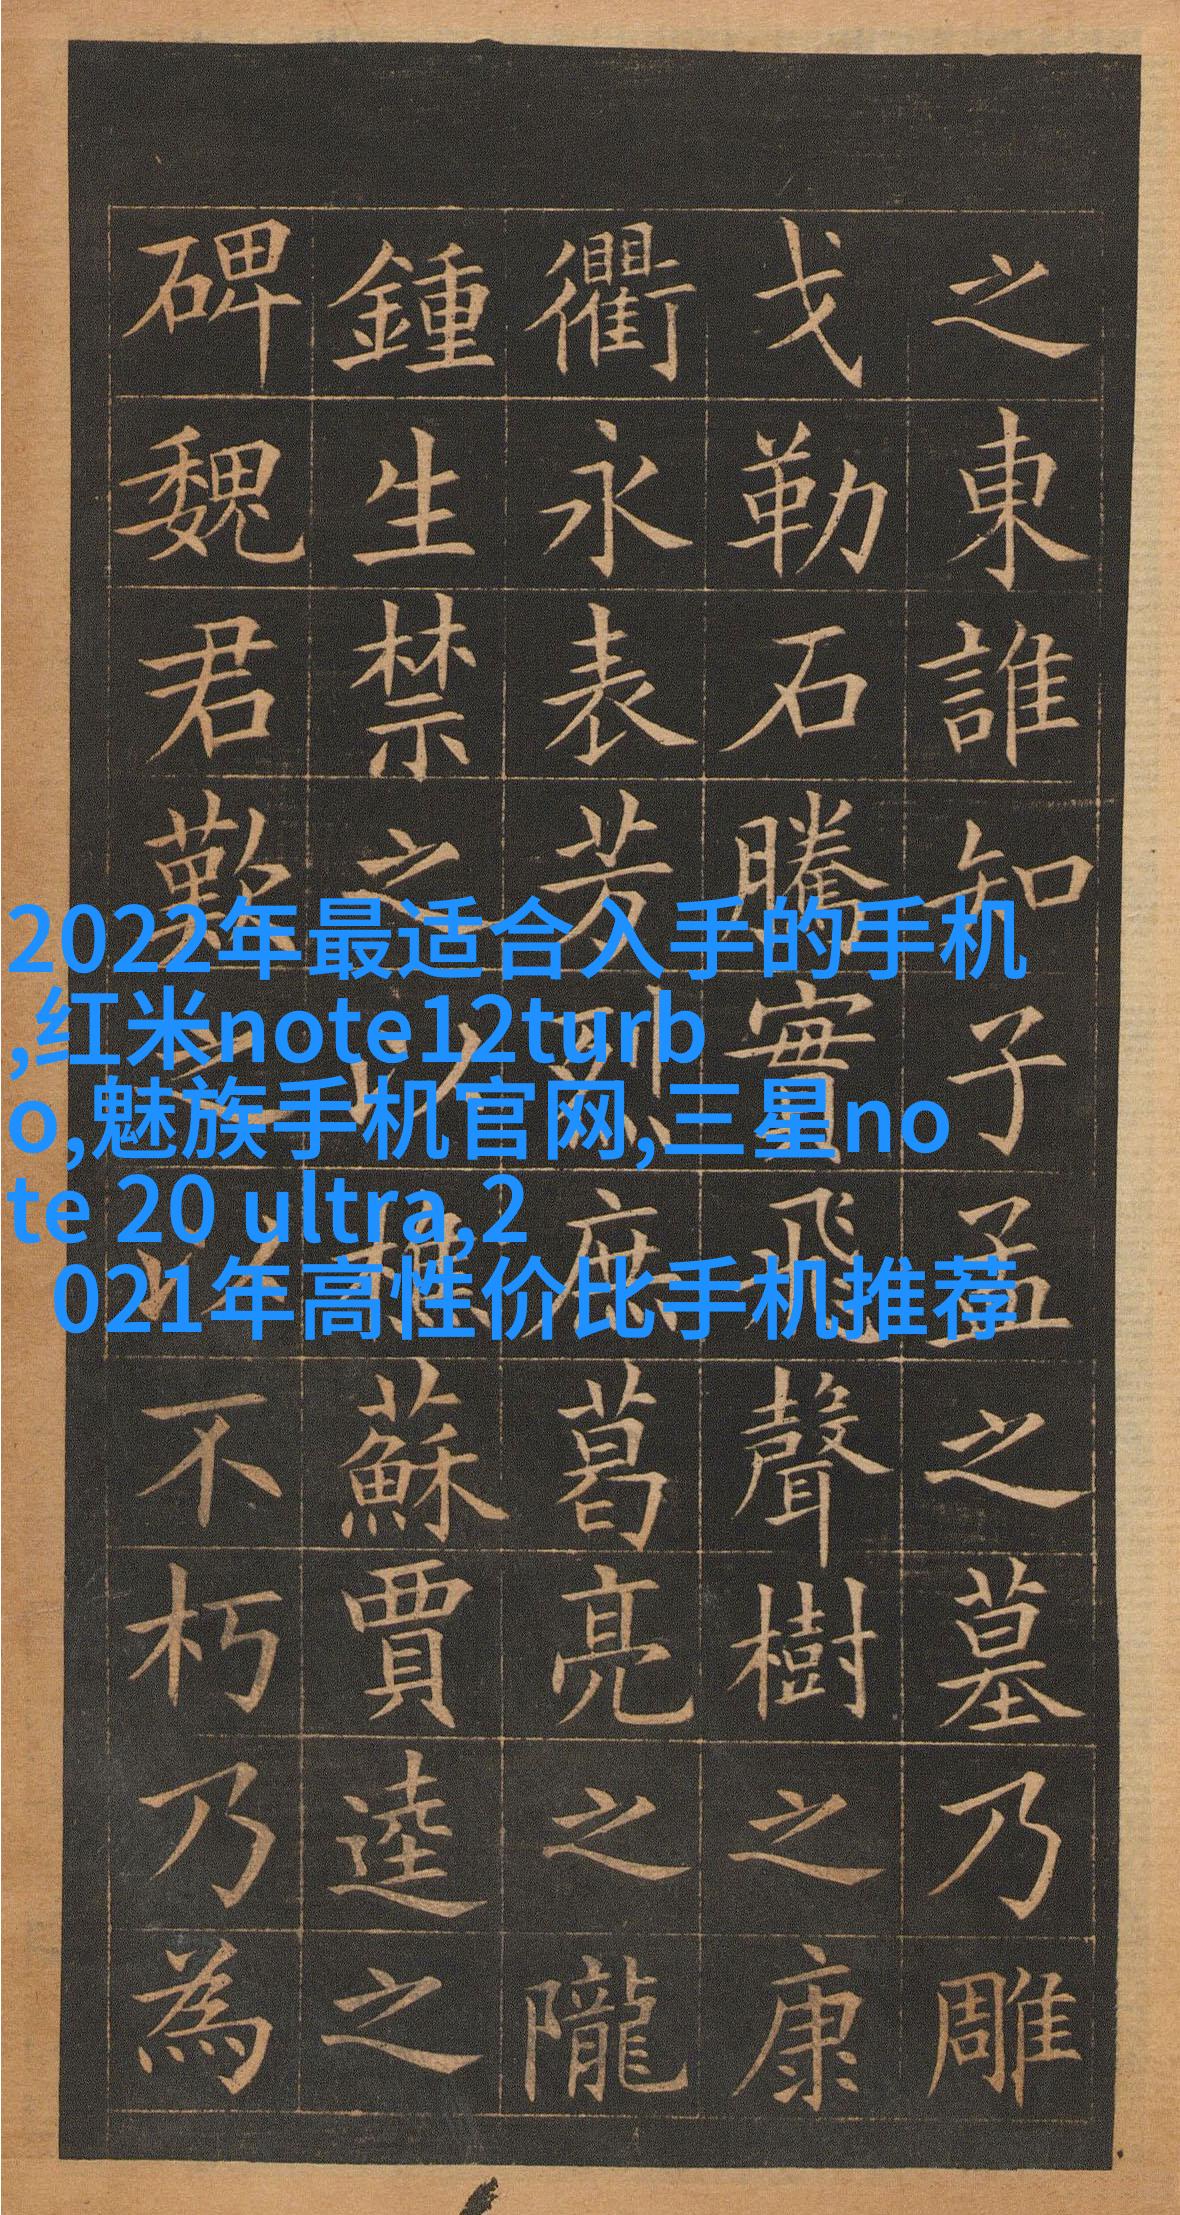 之東誰知子孟之墓乃雕
戈勒石騰實飛聲樹之康
衢永表芳烈庶葛亮之隴
鍾生禁之以樵蘇賈逵之
碑魏君歎之以不朽乃為
2022年最适合入手的手机
,红米note12turb
o,魅族手机官网,三星no
te 20 ultra,2
021年高性价比手机推荐